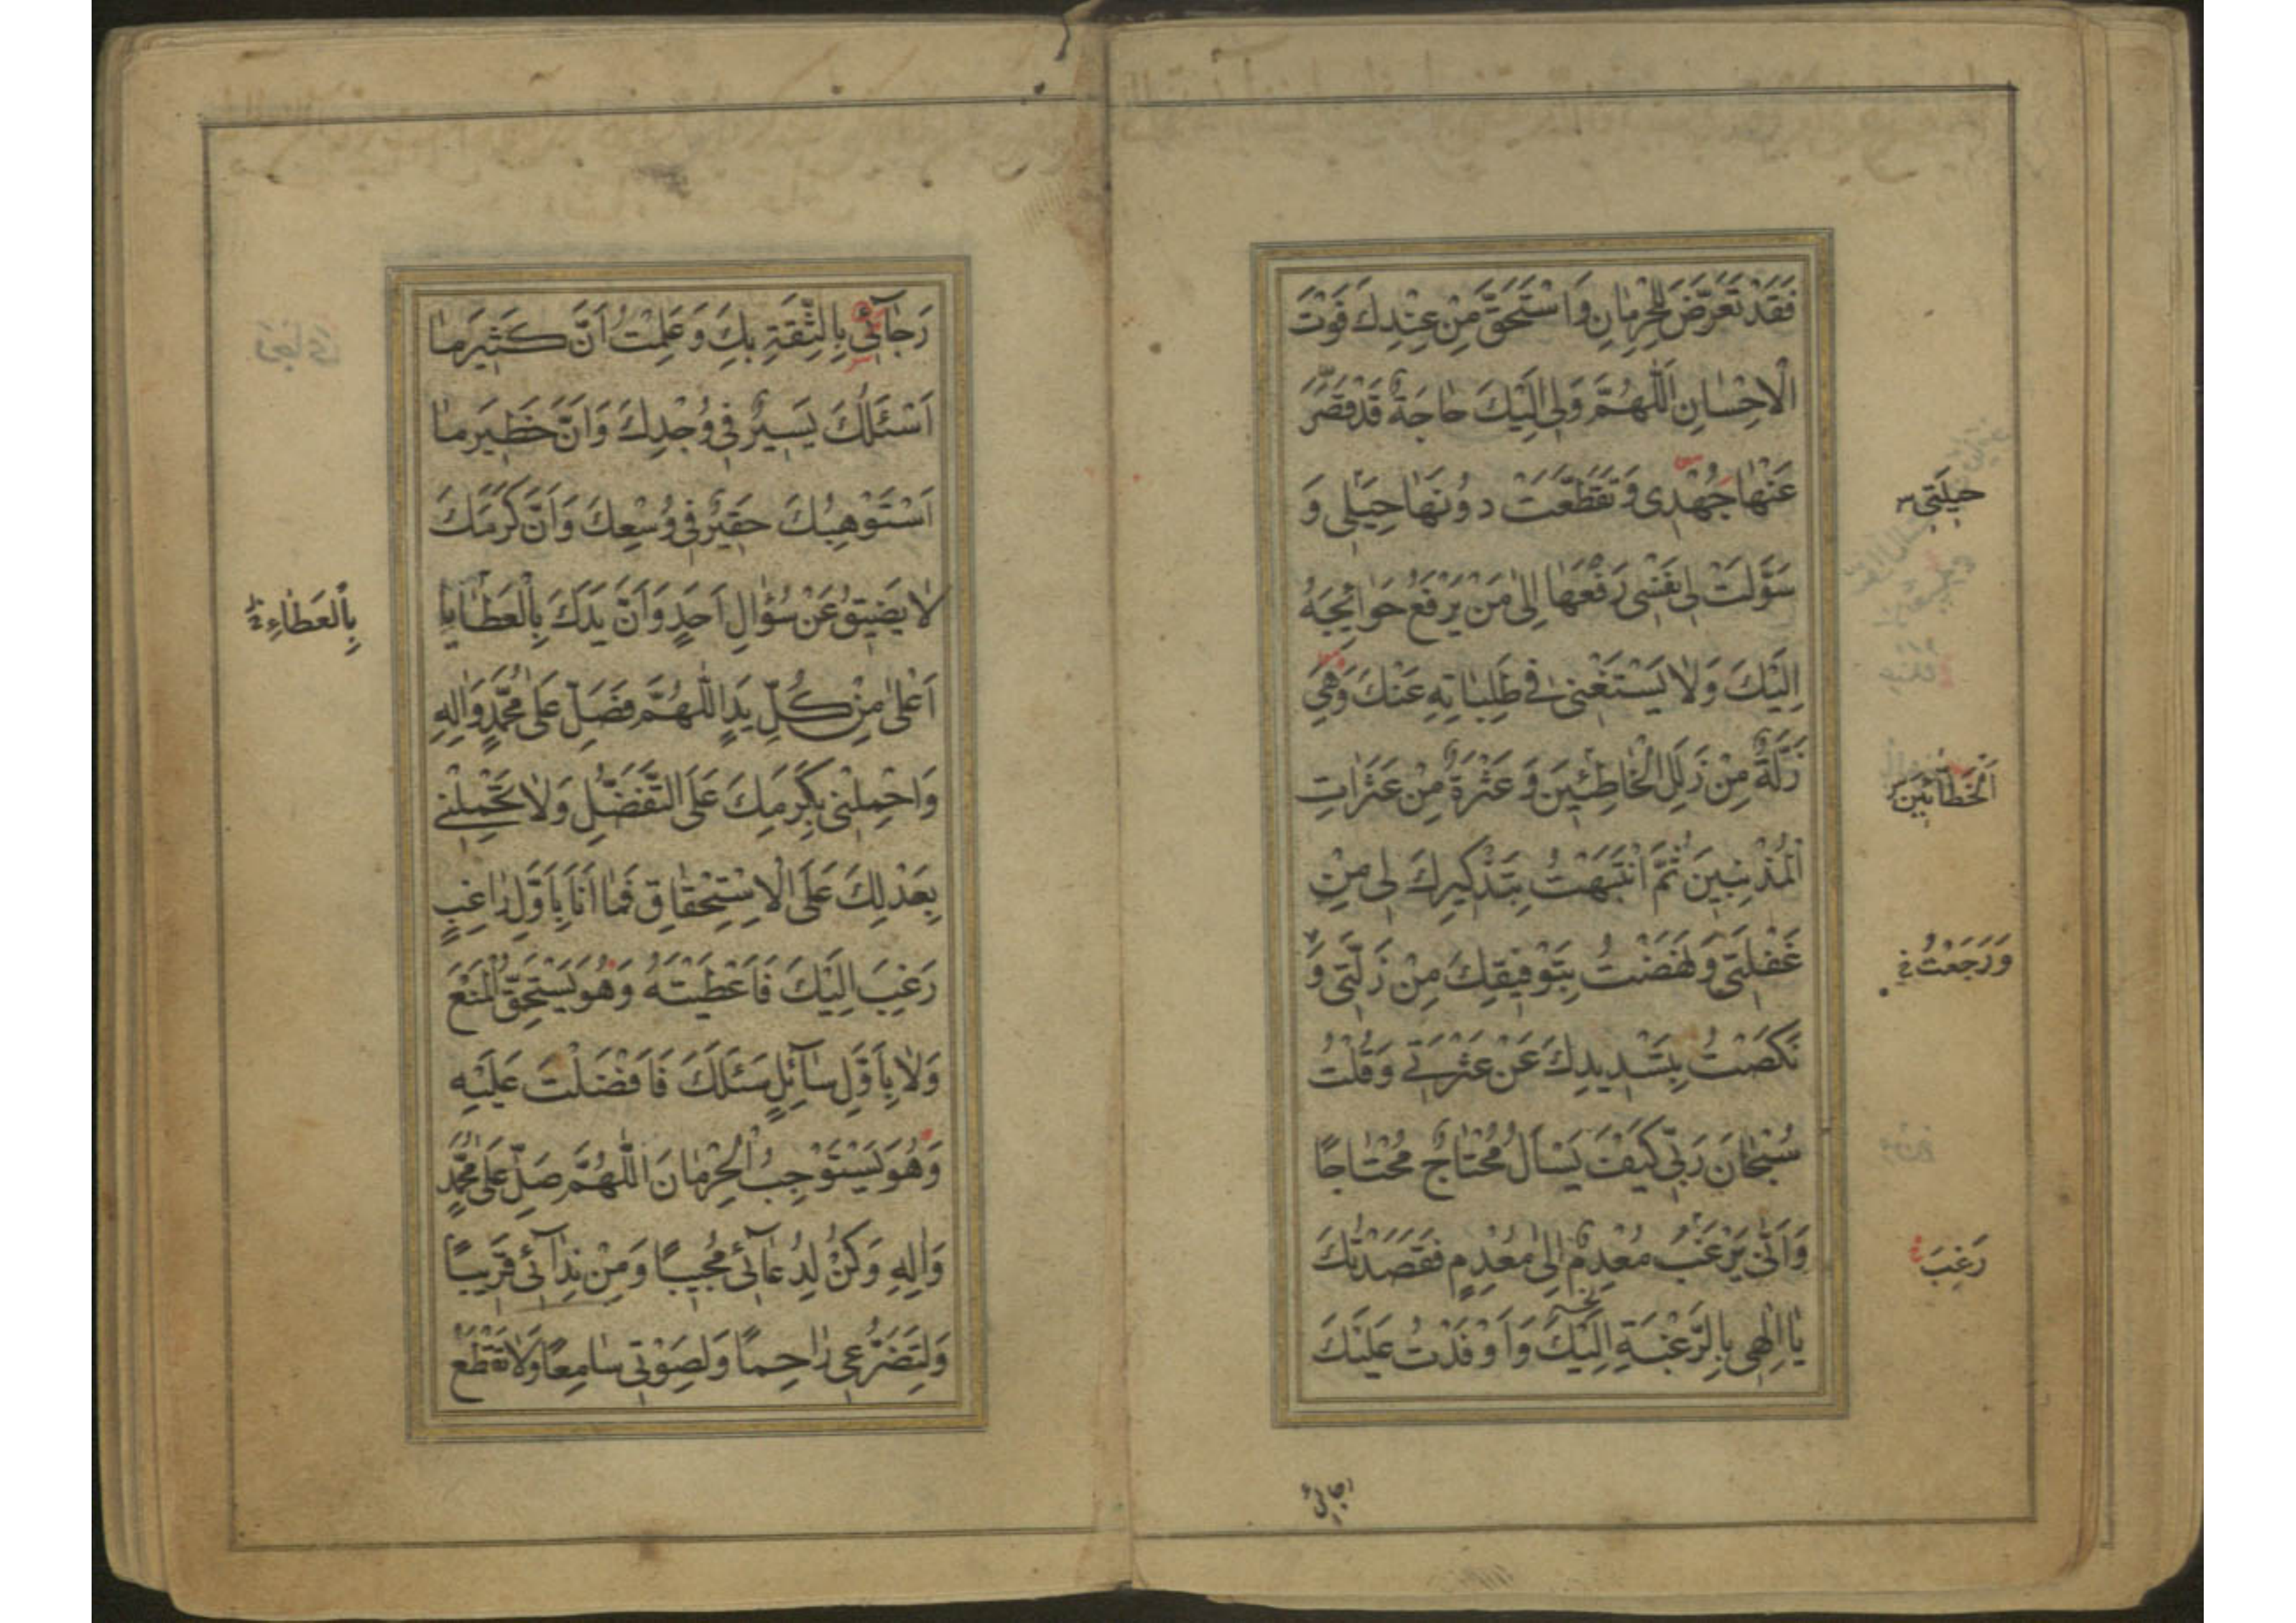 فَقَدْ تَعَرَّضَ لِلْحِرْمٰانِ وَاسْتَحَقَّ مِنْ عِنْدِكَ فَوْتَ
الْاِحْسٰانِ اَللّٰهُمَّ وَلِى اِلَيْكَ حٰاجَةٌ قَدْ قَصَّرَ
عَنْهٰا جُهْدِى وَ تَقَطَّعَتْ دُونَهٰا حِيَلِى وَ
حيلَتِى
سَوَّلَتْ لِى نَفْسِى رَفْعَهٰا اِلىٰ مَنْ يَرْفَعُ حَوٰائِجَهُ
اِلَيْكَ وَلٰا يَسْتَغْنِى فِى طَلِبٰاتِهِ عَنْكَ وَهِىَ
زَلَّةٌ مِنْ زَلَلِ الْخٰاطِئِينَ وَ عَثْرَةٌ مِنْ عَثَرٰاتِ
اَلْخَطّٰائينَ
الْمُذْنِبِينَ ثُمَّ انْتَبَهْتُ بِتَذْكِيرِكَ لِى مِنْ
غَفْلَتِى وَنَهَضْتُ بِتَوْفِيقِكَ مِنْ زَلَّتِى وَ
وَرَجَعْتُ
نَكَصْتُ بِتَسْدِيدِكَ عَنْ عَثْرَتِى وَقُلْتُ
سُبْحٰانَ رَبِّى كَيْفَ يَسْاَلُ مُحْتٰاجٌ مُحْتٰاجًا
وَاَنّٰى يَرْغَبُ مُعْدِمٌ اِلىٰ مُعْدِمٍ فَقَصَدْتُكَ
رَغِبَ
يٰا اِلٰهِى بِالرَّغْبَةِ اِلَيْكَ وَاَوْفَدْتُ عَلَيْكَ
رَجٰآئِى بِالثِّقَةِ بِكَ وَعَلِمْتُ اَنَّ كَثِيرَ مٰا
اَسْئَلُكَ يَسِيرٌ فِى وُجْدِكَ وَاَنَّ خَطِيرَ مٰا
اَسْتَوْهِبُكَ حَقِيرٌ فِى وُسْعِكَ وَاَنَّ كَرَمَكَ
لٰا يَضِيقُ عَنْ سُؤٰالِ اَحَدٍ وَاَنَّ يَدَكَ بِالْعَطٰايٰا
بِالْعَطٰاءِ
اَعْلىٰ مِنْ كُلِّ يَدٍ اَللّٰهُمَّ فَصَلِّ عَلىٰ مُحَمَّدٍ وَاٰلِهِ
وَاحْمِلْنِى بِكَرَمِكَ عَلَى التَّفَضُّلِ وَلٰا تَحْمِلْنِى
بِعَدْلِكَ عَلَى الْاِسْتِحْقٰاقِ فَمٰا اَنَا بِاَوَّلِ رٰاغِبٍ
رَغِبَ اِلَيْكَ فَاَعْطَيْتَهُ وَهُوَ يَسْتَحِقُّ الْمَنْعَ
وَلٰا بِاَوَّلِ سٰآئِلٍ سَئَلَكَ فَاَفْضَلْتَ عَلَيْهِ
وَهُوَ يَسْتَوْجِبُ الْحِرْمٰانَ اَللّٰهُمَّ صَلِّ عَلىٰ مُحَمَّدٍ
وَاٰلِهِ وَكُنْ لِدُعٰآئِى مُجِيبًا وَمِنْ نِدٰآئِى قَرِيبًا
وَلِتَضَرُّعِى رٰاحِمًا وَلِصَوْتِى سٰامِعًا وَلٰا تَقْطَعْ